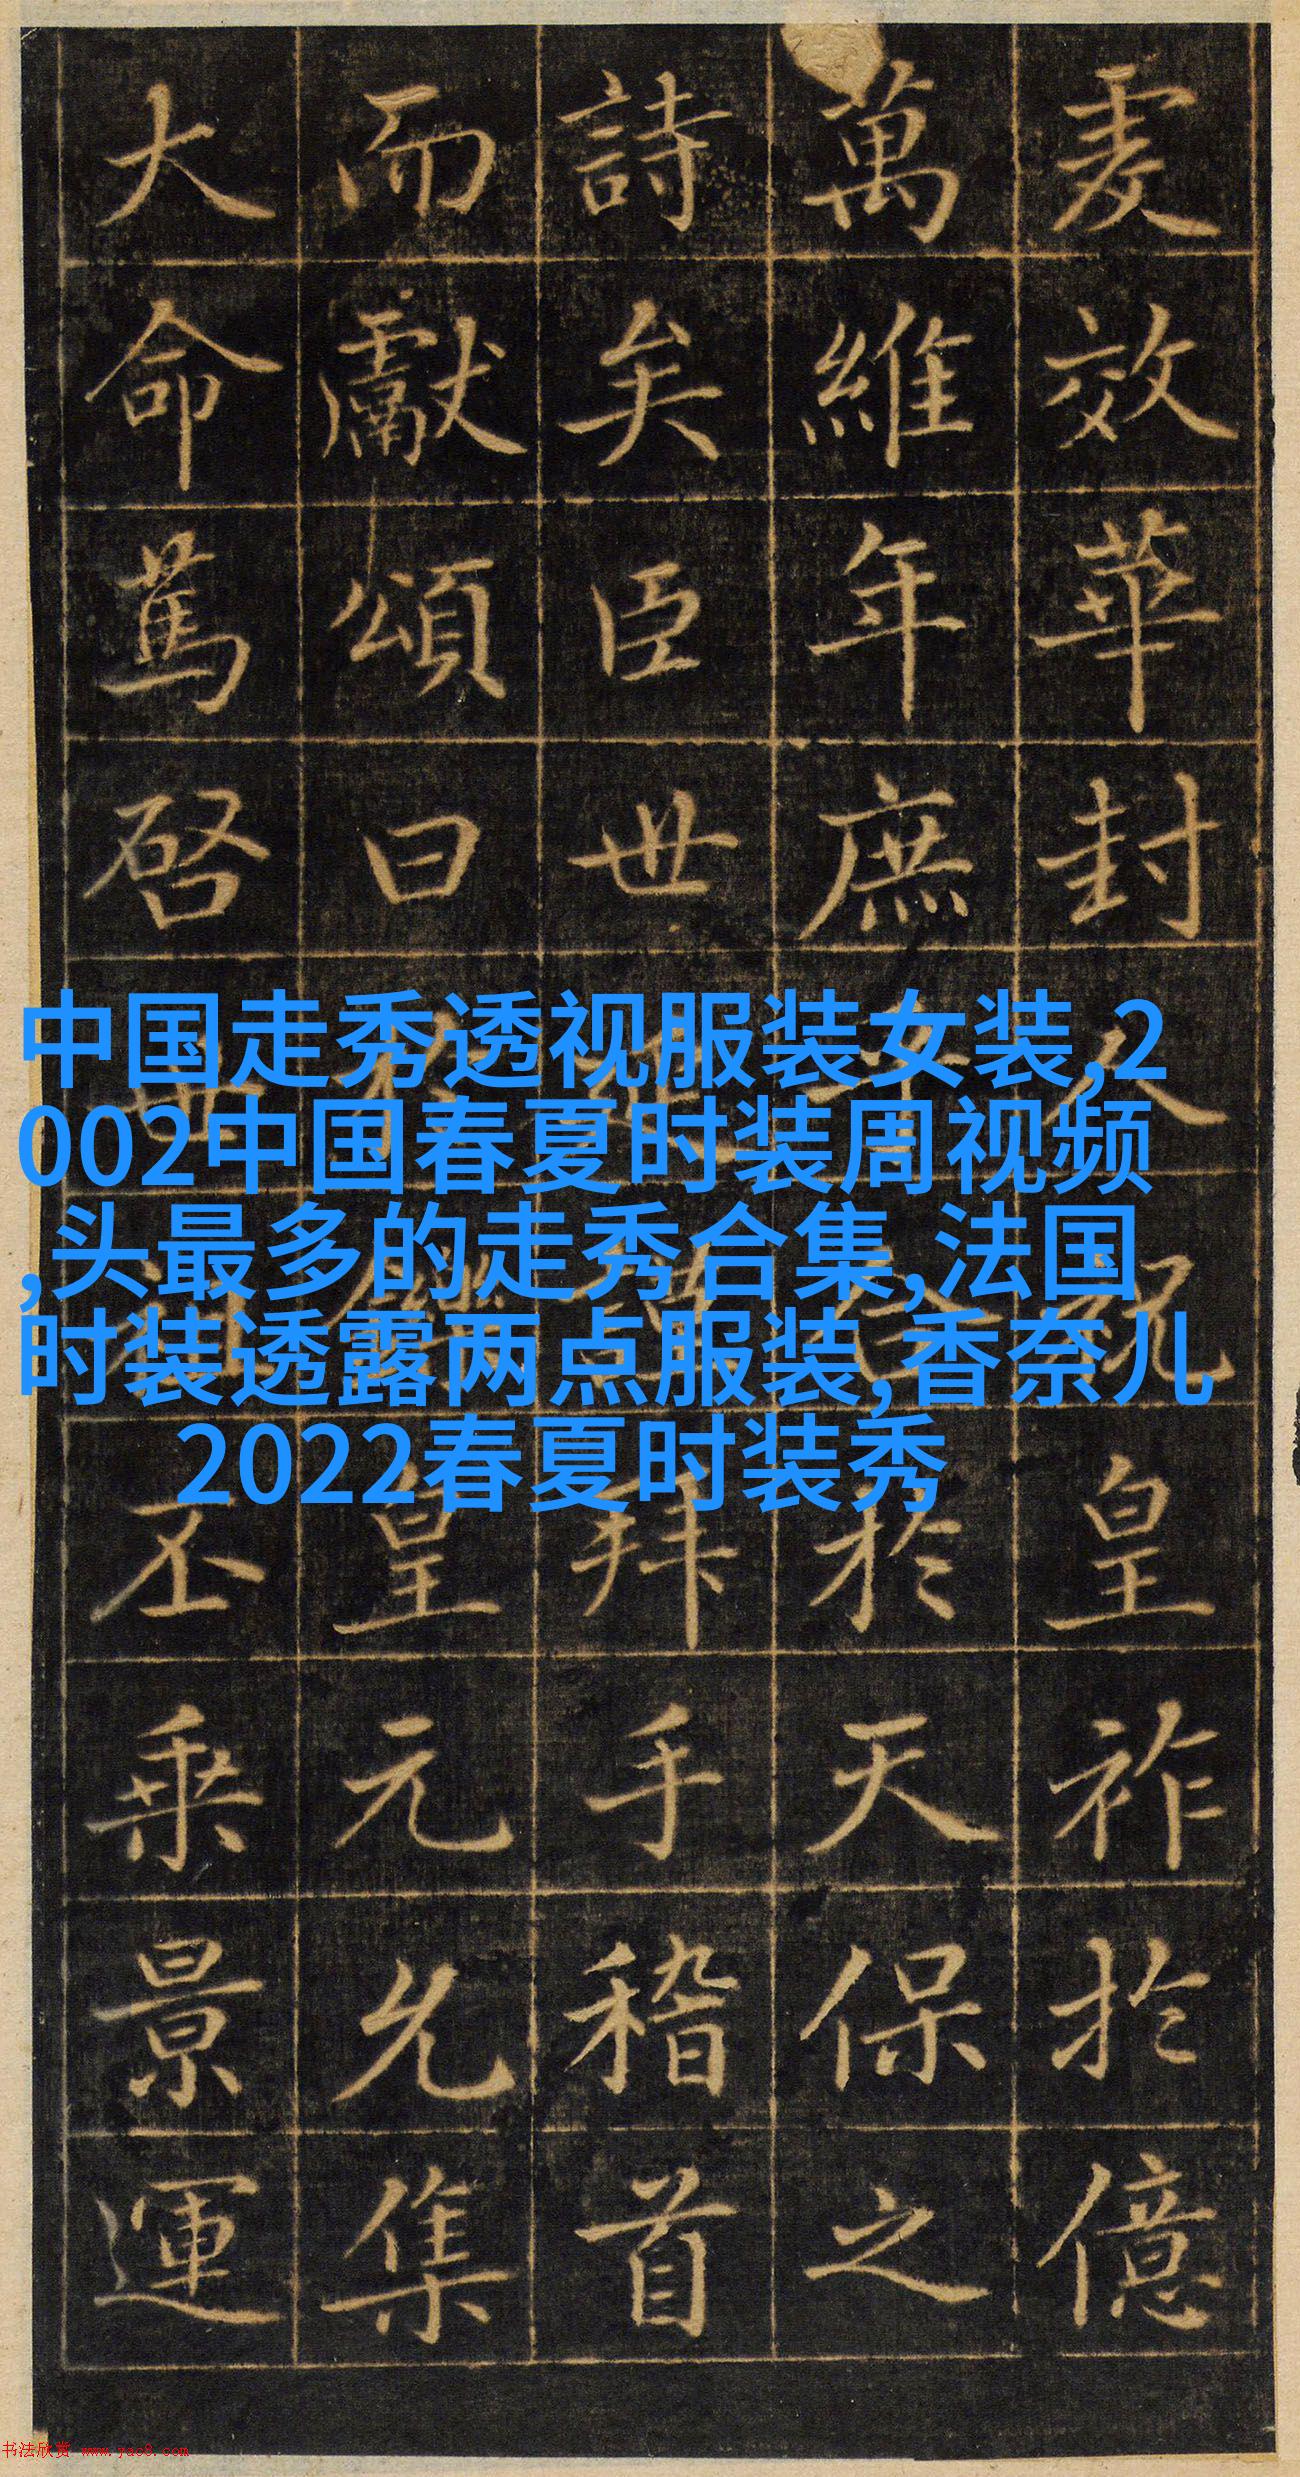 虔效華封皇祚於億
萬維年庶於天保之
詩矣臣世拜手稽首
而獻頌曰皇元允集
大命篤啓丕乘景運
中国走秀透视服装女装,2
002中国春夏时装周视频
,头最多的走秀合集,法国
时装透露两点服装,香奈儿
2022春夏时装秀
书法欣赏 www.yac8.com